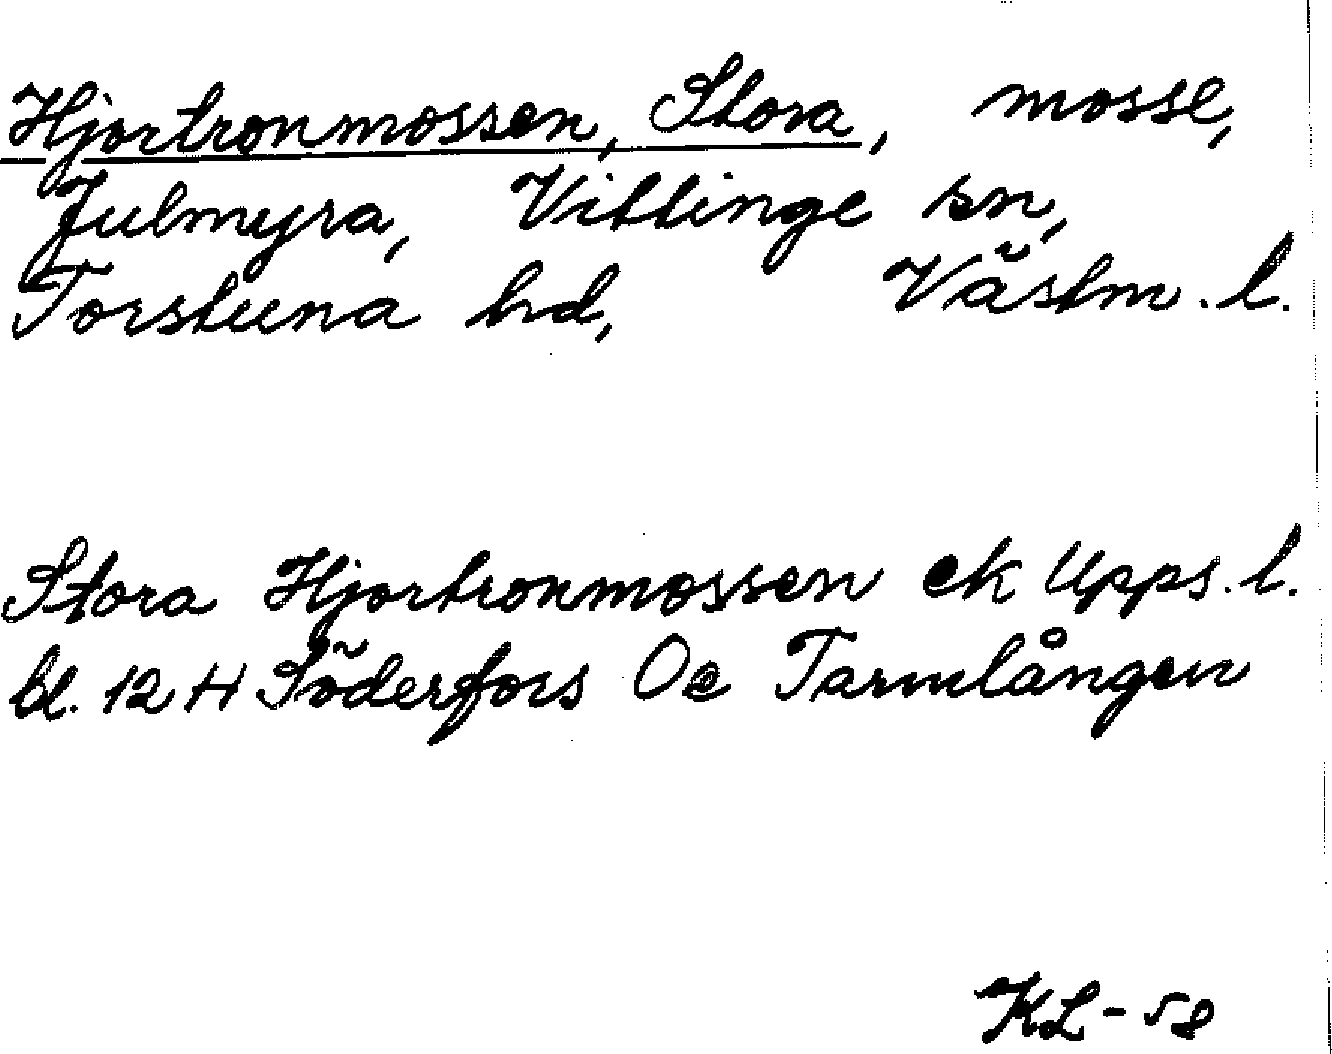 Hjortronmossen, Stora, mosse,
Julmyra, Vittinge sn,
Torstuna hd, Västm. l.
Stora Hjortronmossen ek Upps. l.
bl. 12 H Söderfors 0e Tarmlången
KL-58